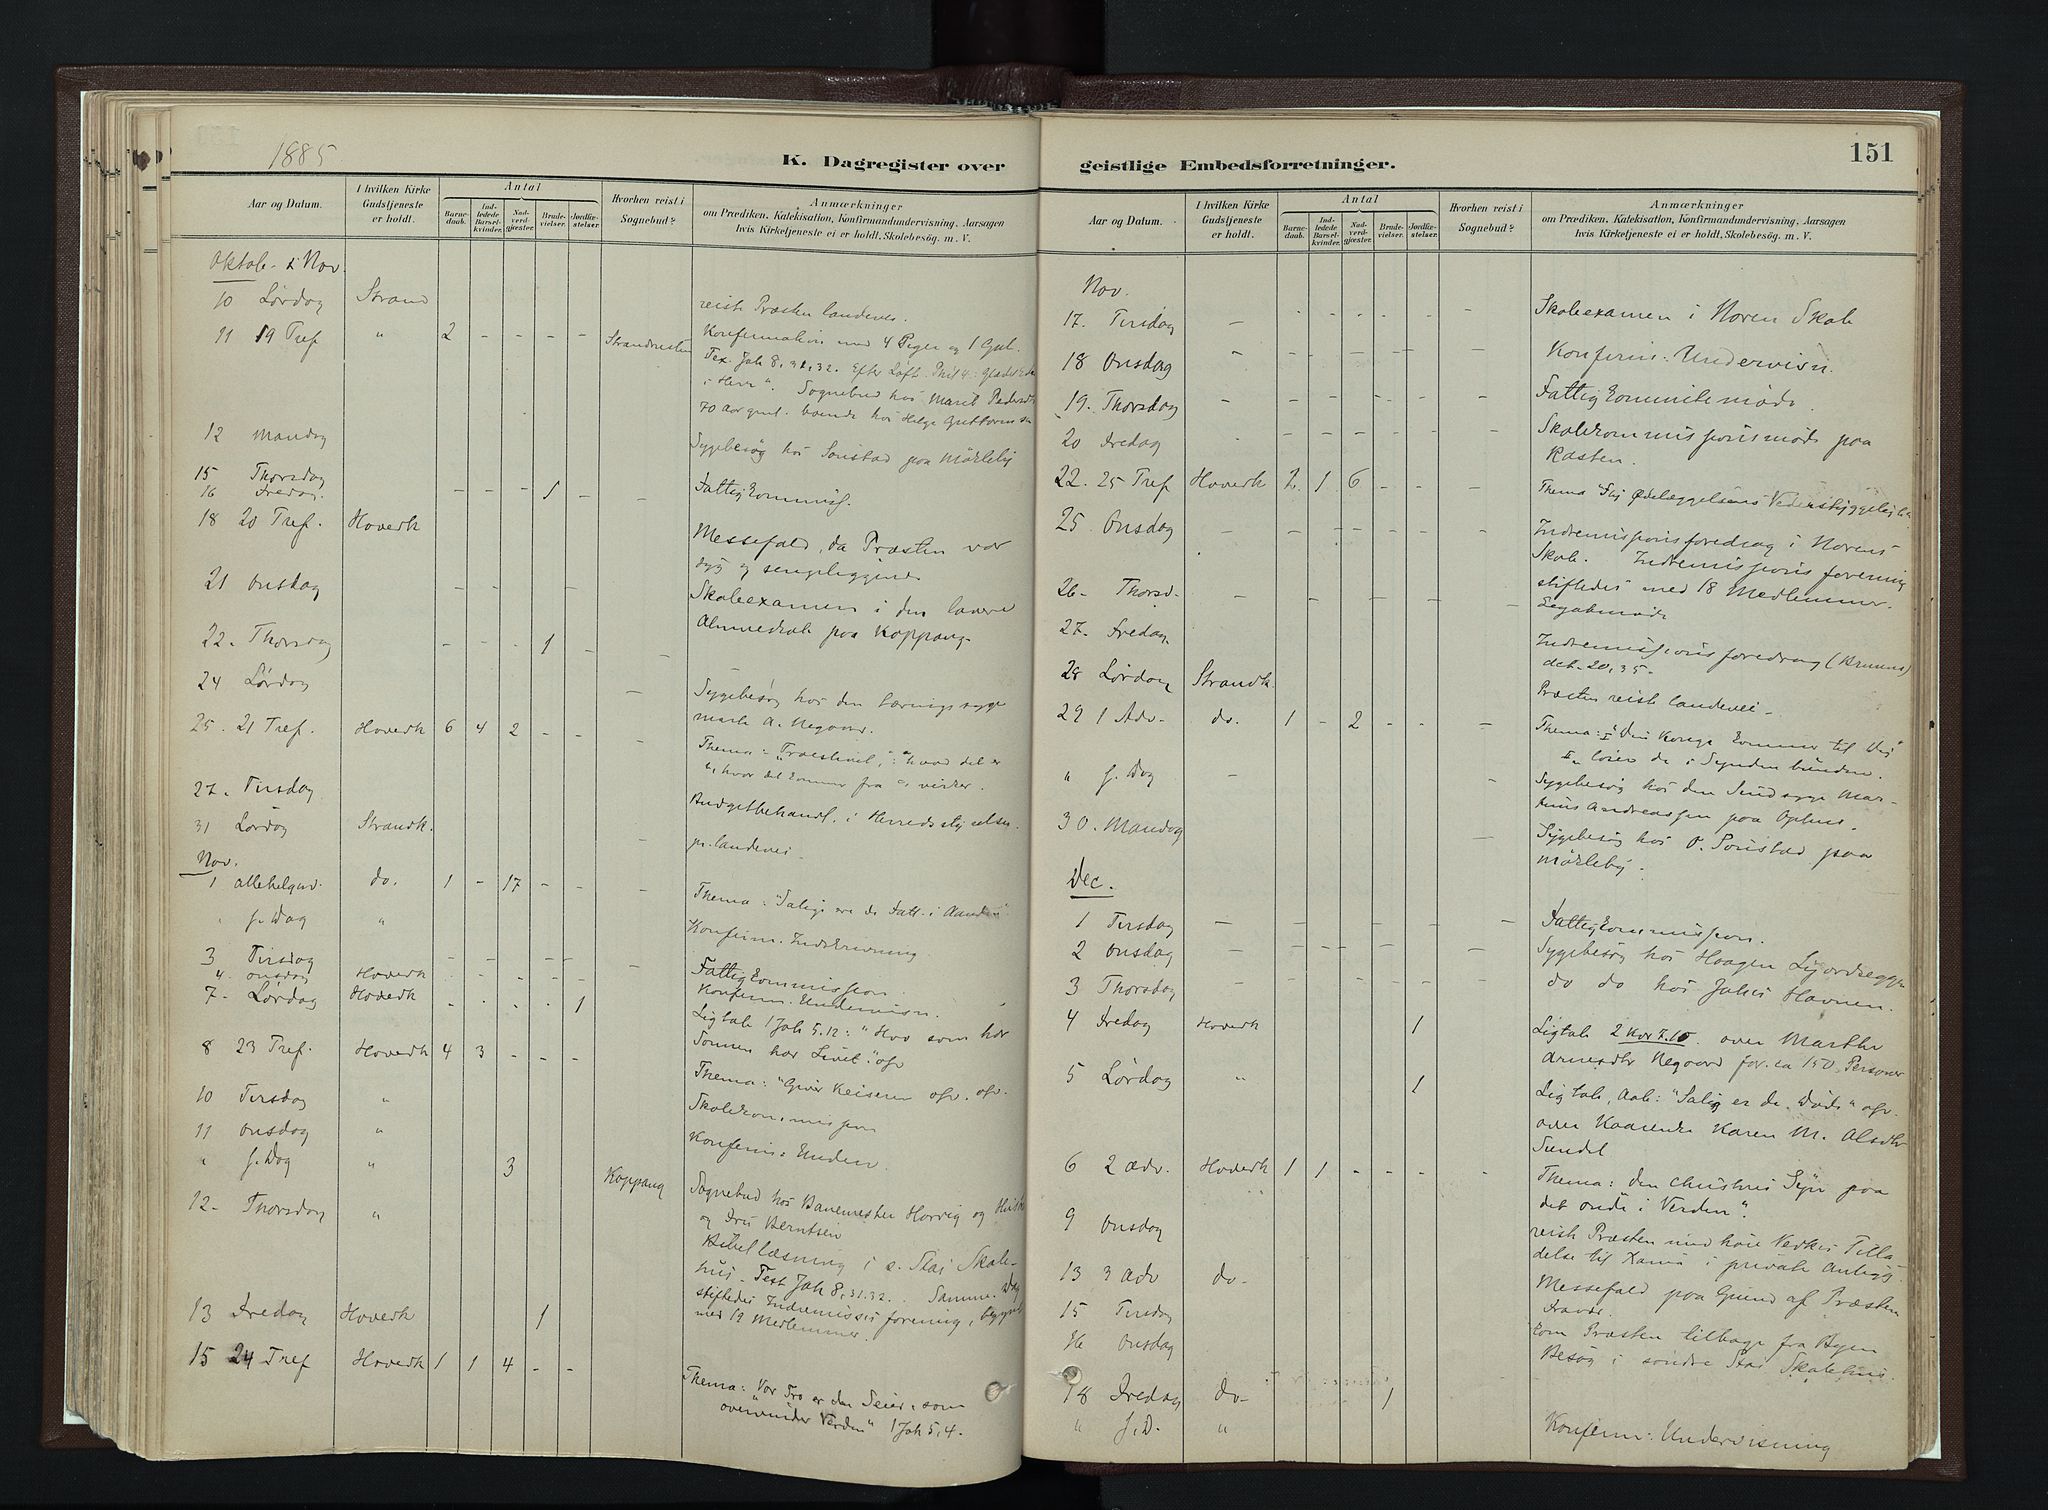 1885
K. Dagregister over
Aar og Datum.
I hvilken Kirke Gudstjeneste er holdt.
Antal
Barnedaab.
Indledede Barselkvinder.
Nadverdgjæster.
Brudevielser.
Jordfæstelser.
Hvorhen reist i Sognebud?
Anmærkninger
om Prædiken, Katekisation, Konfirmandundervisning, Aarsagen
hvis Kirketjeneste ei er holdt, Skolebesøg. m. V.
Oktob. & Nov.
10 Lørdag Strand reist Præsten landevei.
11 19 Tref " 2 - - - - Konfirmation med 4 Piger og 1 Gut.
Tex. Joh 8, 31,32. Efter Løft. Phil 4:
i Herr". Sognebud hos Marit Pedersdtr
70 Aar gml. boende hos Helge Guttormsen
12 Mandag Sygebesøg hos Sonstad paa Mökleby
15 Thorsdag
16 Fredag. - - - 1 - - Fattigkommiss.
18 20 Tref. Hovedk Messefald, da Præsten var
syg og sengeliggende
21 Onsdag - - - - - Skoleexamen i den lavere
Almueskole paa Koppang.
22. Thorsdag - - - 1 - -
24 Lørdag - Sygebesøg hos den tæringssyge
Marte A. Negaard.
25. 21 Tref. Hovedk 6 4 2 - - - Thema: "Troeslivet", : "hvad det er
", hvor det kommer fra ", virker.
27. Tirsdag Budgetbehandl. i Herredsstyrelsen.
31 Lørdag Strandk. - pr. landevei
Nov.
1 Allehelgnd. do. 1 - 17 - - - Thema: "Salige ere de Fatt. i Aanden"
" s. Dag " Konfirm. Indskrivning.
3 Tirsdag - - - - - - Fattigkommission.
4. Onsdag Hovedk - - - - - Konfirm. Undervisn.
7. Lørdag Hovedk - - - - 1 Ligtale 1 Joh 5.12: "Hvo som har
Sønnen har Livet." ofv
8 23 Tref. Hovedk 4 3 - - - Thema: "Giver Keiseren ofv. ofv.
10 Tirsdag " Skolekommission
11 Onsdag " Konfirm: Underv.
" s. Dag " 3 Koppang Sognebud hos Banemester Horvig og
og Fru Berntsen
12. Thorsdag " Bibellæsning i s. Stai Skole-
hus. Text Joh 8,31.32. Samme Dag
stiftedes Indremissionsforening,
med 19 Medlemmer.
13 Fredag Hovedk 1
15 24 Tref Hovedk 1 1 4 - - Thema: "Vor Tro er den Seier, som
overvinder Verden" 1 Joh 5,4.
geistlige Embedsforretninger.
151
Aar og Datum.
I hvilken Kirke Gudstjeneste er holdt.
Antal
Barnedaab.
Indledede Barselkvinder.
Nadverdgjæster.
Brudevielser.
Jordfæstelser.
Hvorhen reist i Sognebud?
Anmærkninger
om Prædiken, Katekisation, Konfirmandundervisning, Aarsagen
hvis Kirketjeneste ei er holdt, Skolebesøg. m. V.
Nov.
17. Tirsdag - - - - - - - Skoleexamen i Noren Skole
18 Onsdag - - - - - - - Konfirm: Undervisn.
19. Thorsdag - - - - - - - Fattigkommitemøde.
20 Fredag - - - - - - Skolekommissionsmøde paa
Kasten.
22. 25 Tref Hovedk 2. 1 6 - - - Thema "Fly Ødelæggelsens Vederstyggelighed
25. Onsdag - - - - - - - Indremissionsforedrag i Norens
Skole. Indremissionsforening
stiftedes med 18 Medlemmer.
26. Thorsd. - - - - - - - Legatmøde
27. Fredag. Indremissionsforedrag (Bruuns)
28 Lørdag Strandk. Præsten reist landevei.
29 1 Adv. do. 1 - 2 - - - Thema: "I Din Konge kommer til dig"
" s. Dag - - Sygebesøg hos den Sindssyge Mar-
30. Mandag - Sygebesøg hos O. Sonstad paa
Mökleby.
Dec.
1 Tirsdag - - - - - - - Fattigkommission.
2 Onsdag - - - - - - - Sygebesøg hos Haagen
3 Thorsdag - - - - - - - do do hos Johs Havnen.
4 Fredag Hovedk 1 Ligtale 2 Kor 7.10. over Marthe
Arnesdtr Negaard for ca 150 Personer
5 Lørdag " 1 Ligtale, Aab: "Salig er de Døde" ofv.
over Karen M. Olsdtr
Sundet
6 2 Adv. Hovedk 1 1 - - - - Thema: Den Christnes Syn paa
det onde i Verden".
9 Onsdag reist Præsten med høie Vedk's Tilla
delse til Xania i private Anligg.
13 3 Adv do. Messefald paa Grund af Præsten
Fravær.
15 Tirsdag kom Præsten tilbage fra Byen
16 Onsdag Besøg i søndre Stai Skolehus.
18 Fredag do. 1
" s. D. " Konfirm: Undervisning